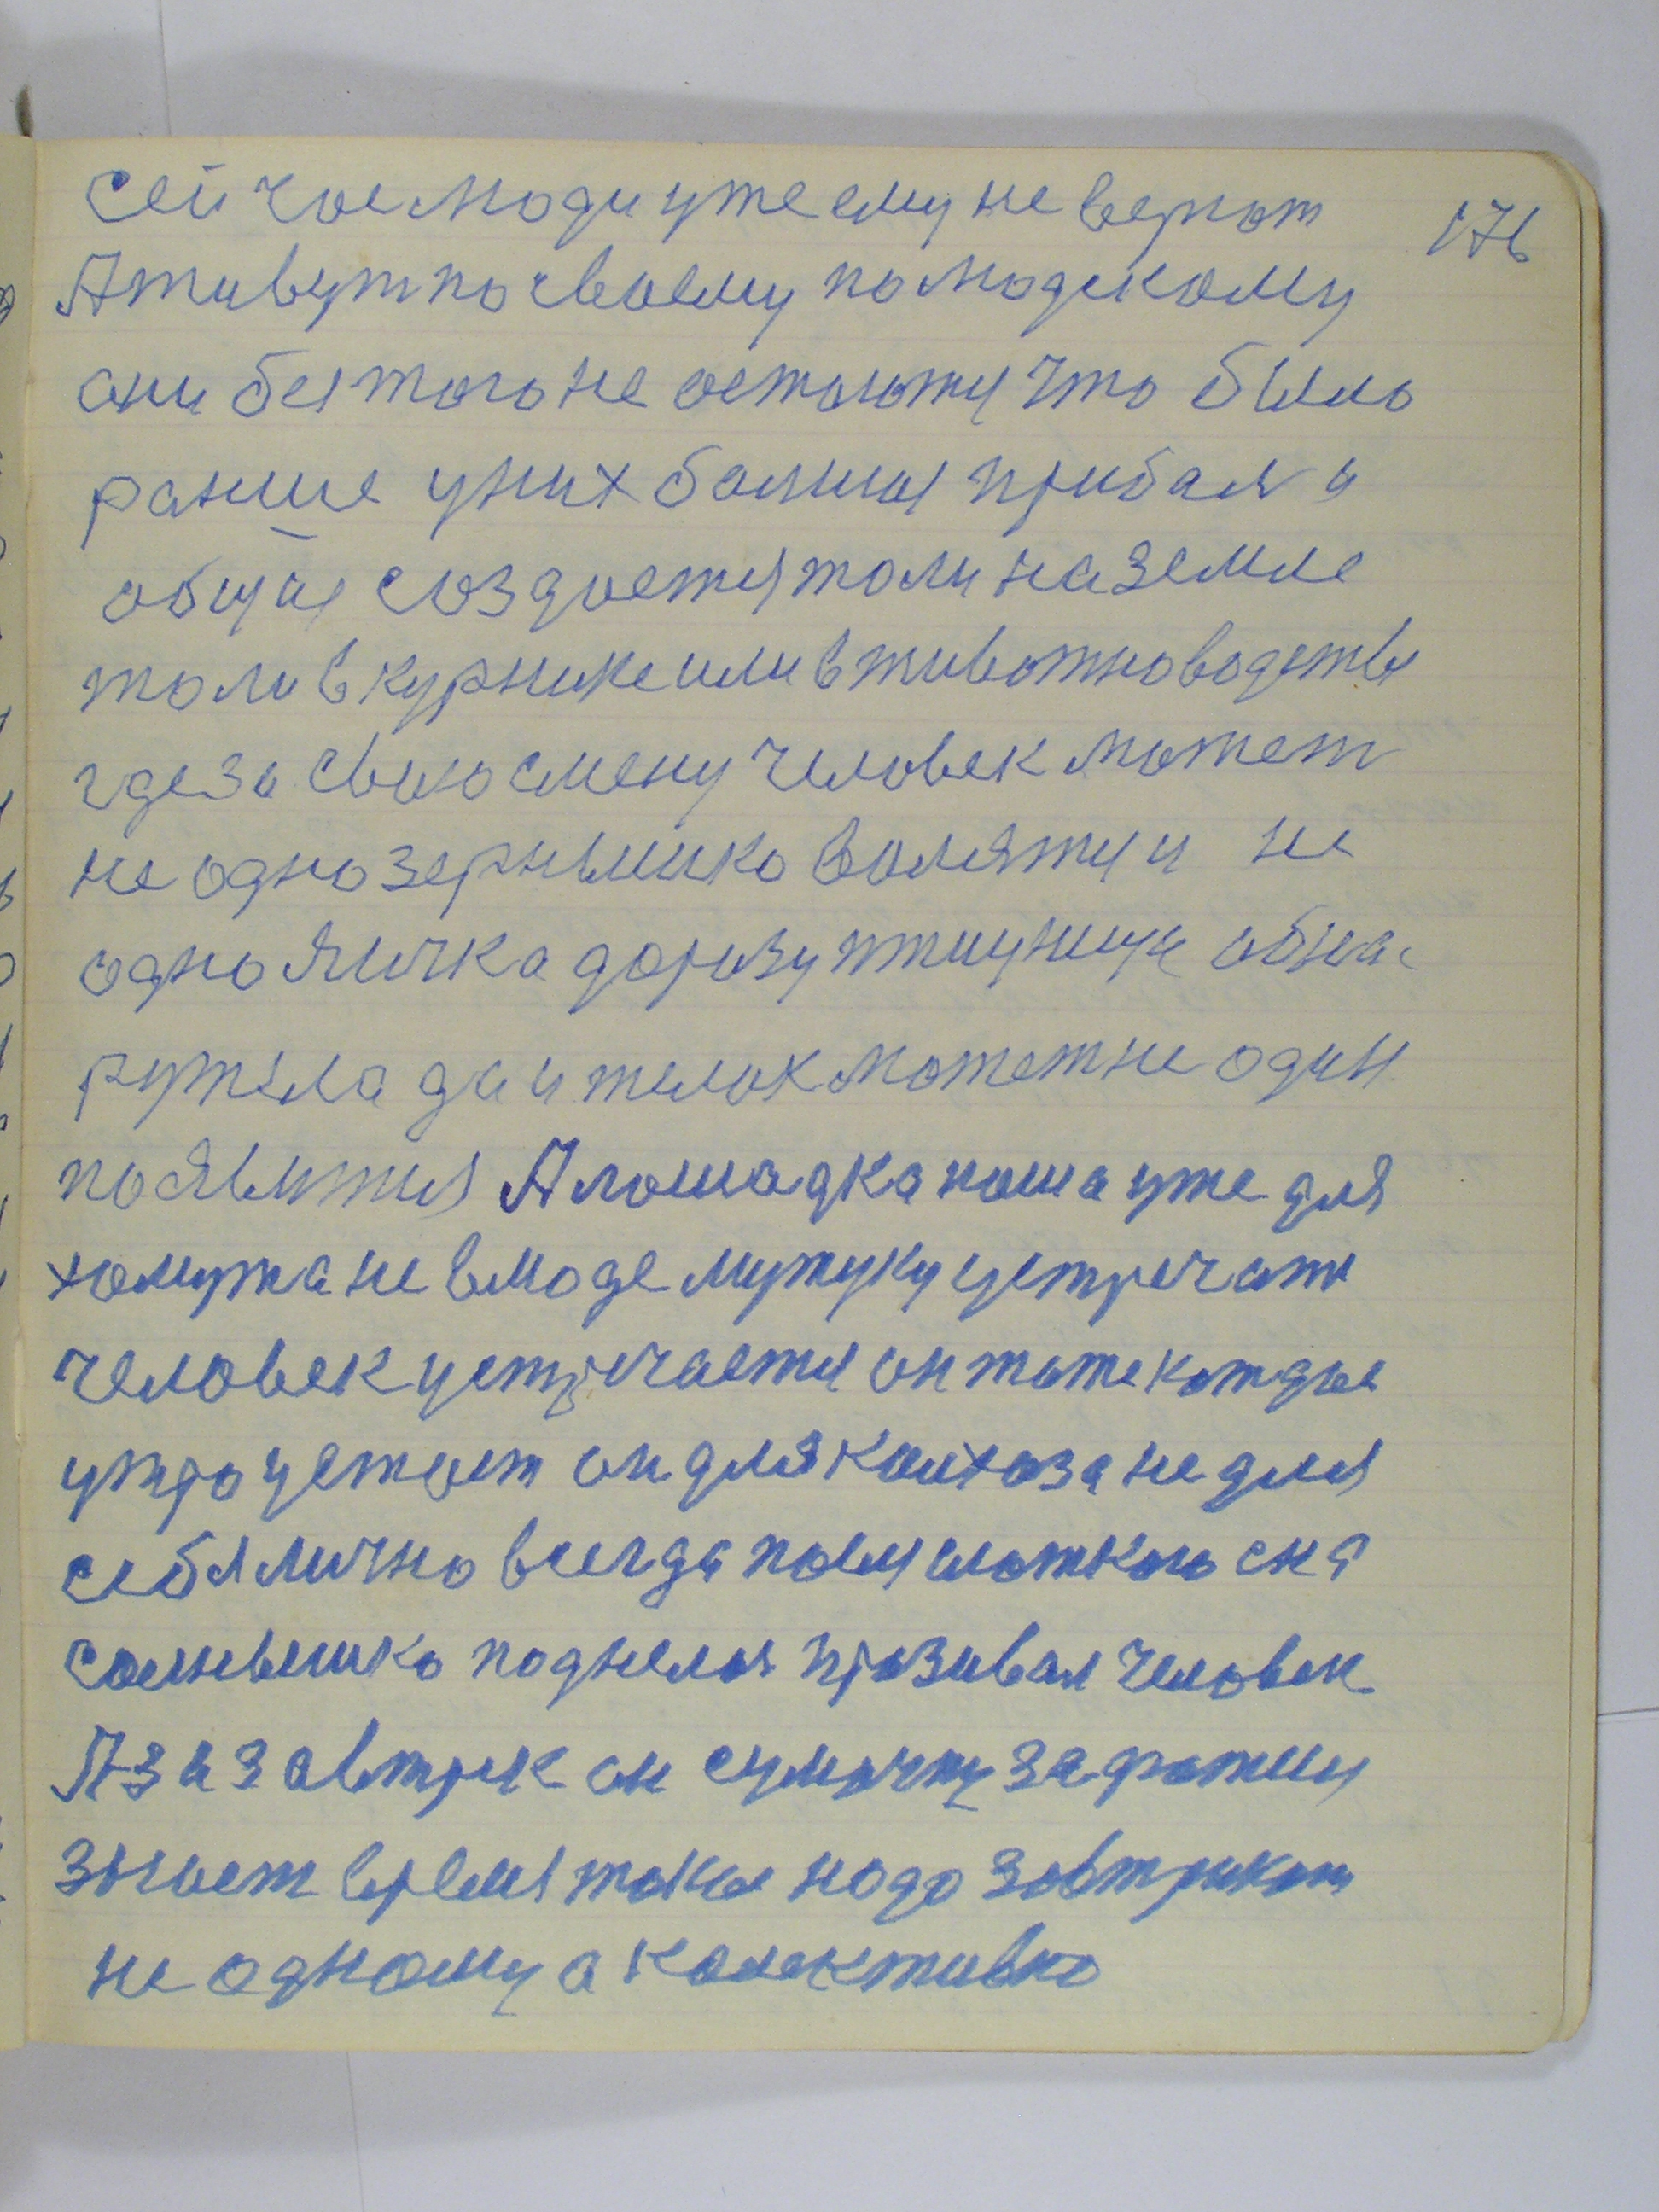 сей час люди уже ему не верют 176
А живут по своему по людскому
они без того не остаются что было
ранше у них болшая прибаля и
общая создается толи на земле
толи в курнике или в животноводстве
где за свою смену человек может
не одно зернышко валятся и не
одно яичка до разу птицница обна
ружила да и телок может не один
появится А лошадка наша уже для
хомута не в моде мужуку устречати
человек устречается он тоже каждое
утро устает он для колхоза не для
себя лично всегда после слаткого сна
солнышко поднелося призивая человек
А за завтрек он сумочку
знает время токое надо завтрикат
не одному а колективно